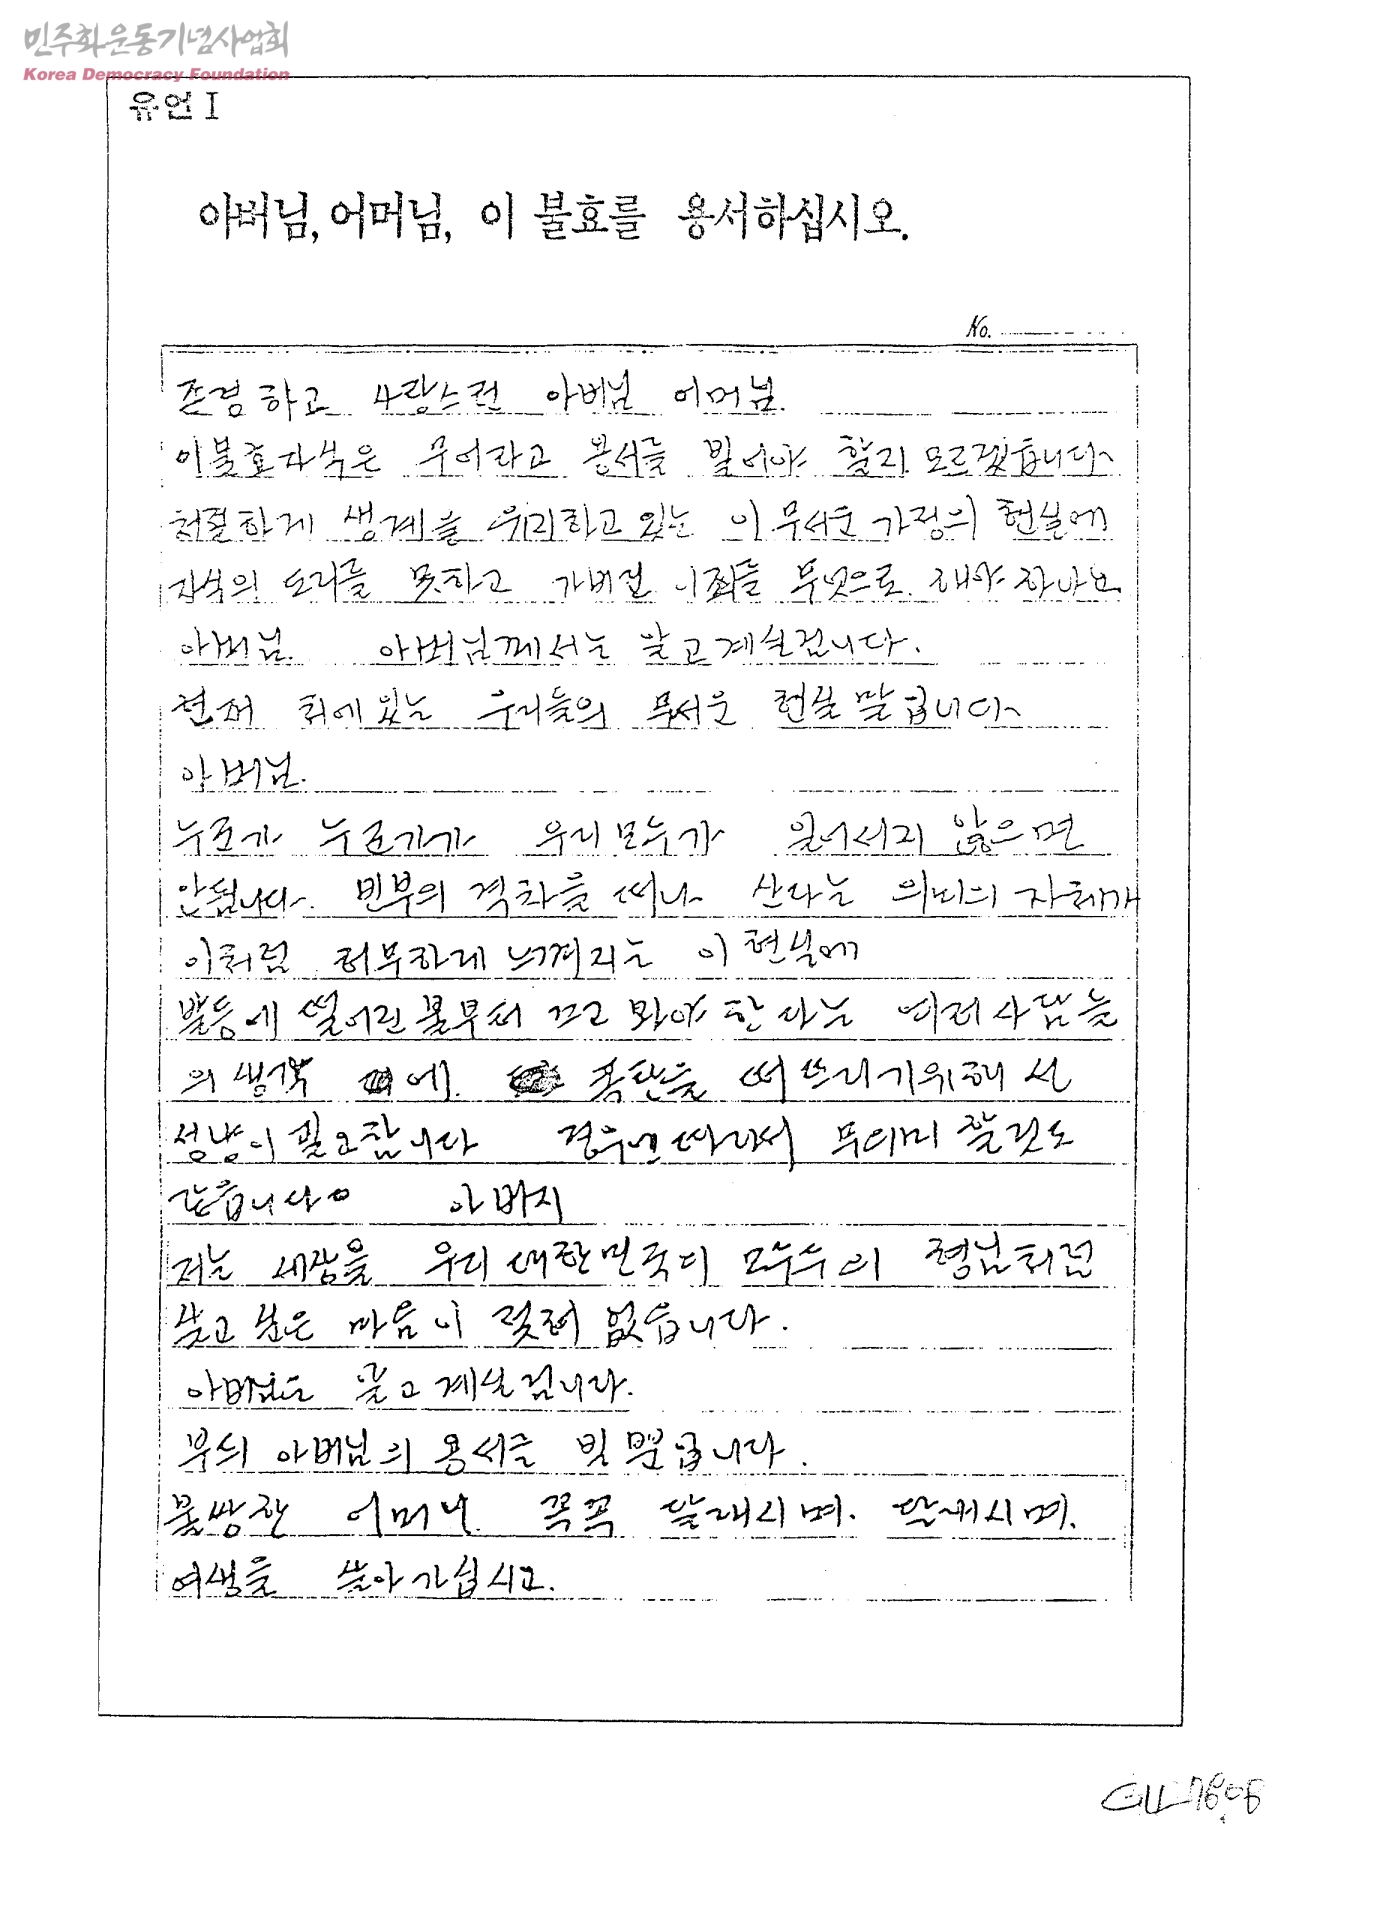 민주화운동기념사업회
Korea Democracy Foundation
유언 I
아버님, 어머님, 이 불효를 용서하십시오.
No.
존경하고 사랑스런 아버님 어머님.
이불효자식은 무어라고 용서를 빌어야 할지 모르겠습니다
처절하게 생계를 유지하고 있는 이 무서운 가정의 현실에
자식의 도리를 못하고 가버린 이죄를 무엇으로 해야 하나요
아버님. 아버님께서는 알고계실겁니다.
현재 처해있는 우리들의 무서운 현실말입니다
아버님.
누군가 누군가가 우리모두가 일어서지 않으면
안됩니다. 빈부의 격차를 떠나 산다는 의미의 자체가
이처럼 허무하게 느껴지는 이 현실에
발등에 떨어린 불부터 끄고 봐야 한다는 여러사람들
의 생각 에. 폭탄을 터뜨리기위해선
성냥이 필요합니다 경우에따라서 무의미 할것도
같습니다 아버지
저는 세상을 우리 대한민국이 모두수의 형님처럼
살고 싶은 마음이 전혀 없습니다.
아버님도 알고계실겁니다.
부듸 아버님의 용서를 빌 뿐입니다.
불쌍한 어머니 꼭꼭 달래시며. 달래시며.
여생을 살아가십시고.